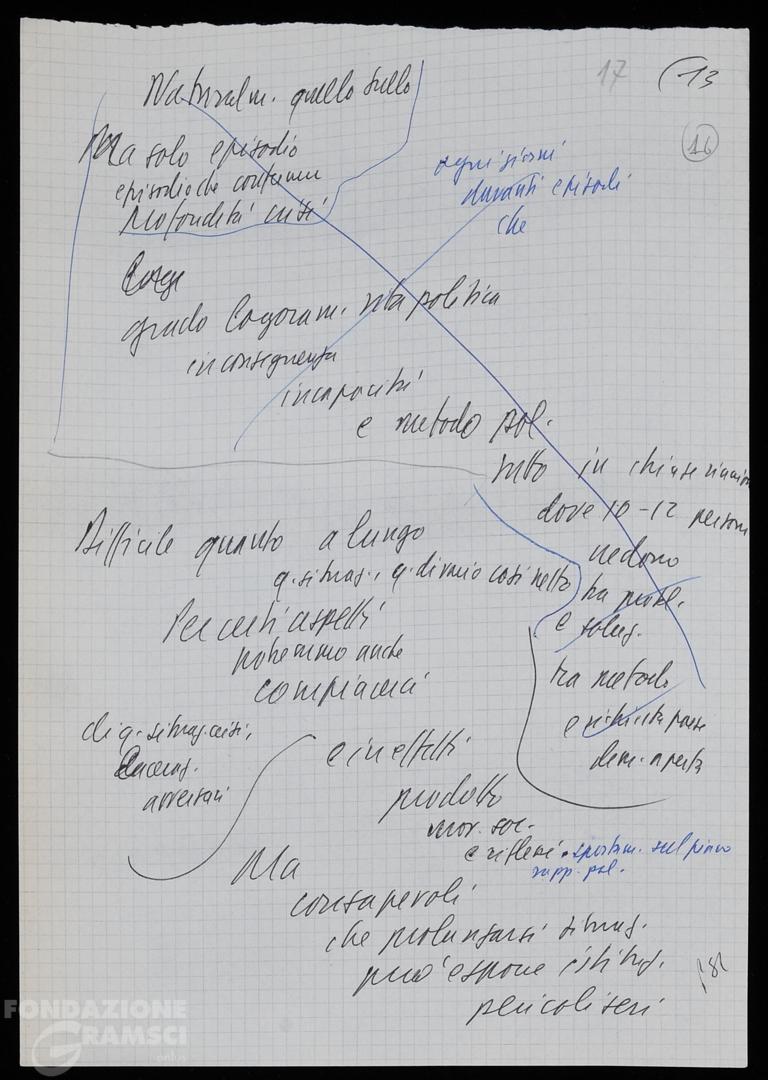 17 (13
16
Naturalm. quello sullo
Ma solo episodio
episodio che conferma
profondità crisi
ogni giorni
davanti episodi
che
grado logoram. vita politica
in conseguenza
incapacità
e metodo pol.
tutto in chiuse riunioni
dove 10-12 persone
vedono
tra probl.
e soluz.
tra metodo
e richiesta paese
dem. aperta
Difficile quanto a lungo
q. situaz., q. divario così netto
Per certi aspetti
potremmo anche
compiacerci
di q. situaz. crisi,
laceraz.
avversari
e in effetti
prodotto
mov. soc.
e riflessi spostam. sul piano
rapp. pol.
Ma
consapevoli
che prolungarsi situaz.
può esporre istituz.
pericoli seri
FONDAZIONE
GRAMSCI
onlus